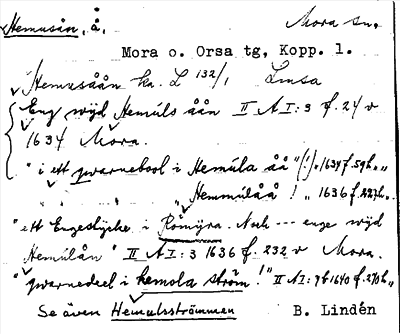 Hemusån, å. Mora sn.
Mora o. Orsa tg, Kopp. l.
Hemusåån ka. L 132/1 Lmsa
Eng wijd Hemuls åån II A I:3 f. 24 v
1634 Mora.
"i ett qwarnebool i Hemula åå" (!) „ 1634 f. 59 h. „ „
„ „ „ Hemmulåå ! „ 1636 f. 227 h. „
"ett Engestycke i Romyra. Noch --- enge wijd
Hemulån" II A I:3 1636 f. 232 v Mora.
"qwarnedeel i hemola ström!" II A I:9b 1640 f. 270 h. „
Se även Hemulsströmmen B. Lindén